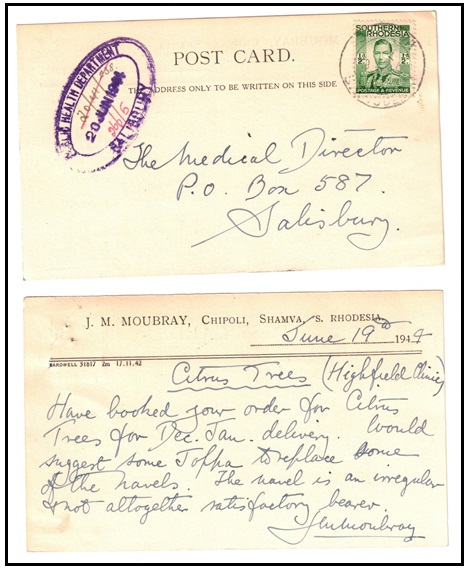 POST CARD.
THE ADDRESS ONLY TO BE WRITTEN ON THIS SIDE
SOUTHERN
RHODESIA
POSTAGE & REVENUE
PUBLIC HEALTH DEPARTMENT
20 JUN
SALISBURY
The Medical Director
P.O. Box 587.
Salisbury.
J. M. MOUBRAY, CHIPOLI, SHAMVA, S. RHODESIA
June 19th 1944
BARDWELL 31817 2m 17.11.42
Citrus Trees (Highfield Clinic)
Have booked your order for Citrus
Trees for Dec. Jan. delivery. Would
suggest some Joppa to replace some
of the navels. The navel is an irregular
& not altogether satisfactory bearer.
JMMoubray